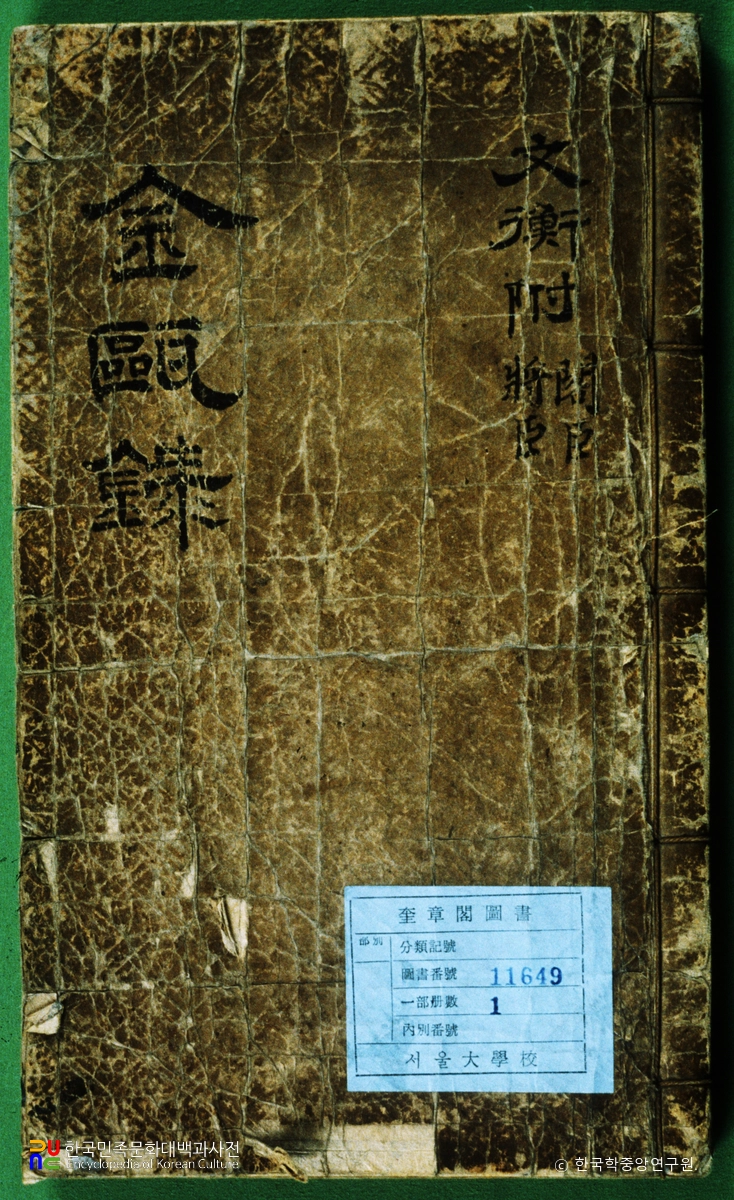 文衡附
閫臣
將臣
金甌錄
奎章閣圖書
部別
分類記號
圖書番號 11649
一部册數 1
內別番號
서울大學校
한국민족문화대백과사전
Encyclopedia of Korean Culture
ⓒ 한국학중앙연구원